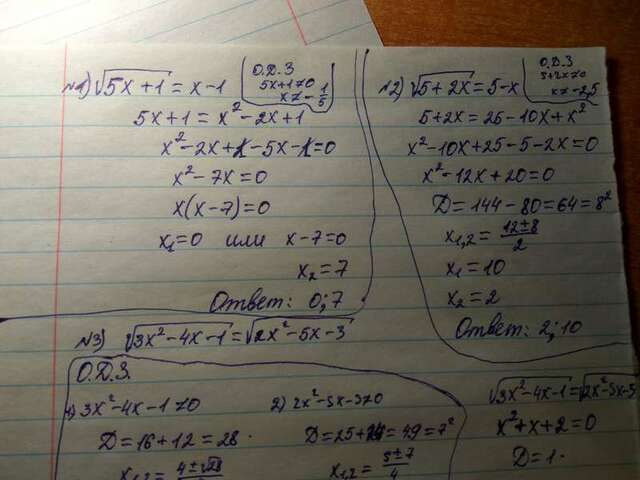 №1) √5x+1 = x-1
О.Д.З
5x+1≥0
x≥-1/5
5x+1 = x²-2x+1
x²-2x+1-5x-1=0
x²-7x=0
x(x-7)=0
x₁=0 или x-7=0
x₂=7
Ответ: 0;7
№2) √5+2x = 5-x
О.Д.З
5+2x≥0
x≥-2,5
5+2x = 25-10x+x²
x²-10x+25-5-2x=0
x²-12x+20=0
D=144-80=64=8²
x₁,₂ = 12±8/2
x₁=10
x₂=2
Ответ: 2;10
№3) √3x²-4x-1 = √2x²-5x-3
О.Д.З.
1) 3x²-4x-1≥0
D=16+12=28.
x₁,₂ = 4±√28
2) 2x²-5x-3≥0
D=25+24=49=7²
x₁,₂ = 5±7/4
√3x²-4x-1=√2x²-5x-3
x²+x+2=0
D=1-